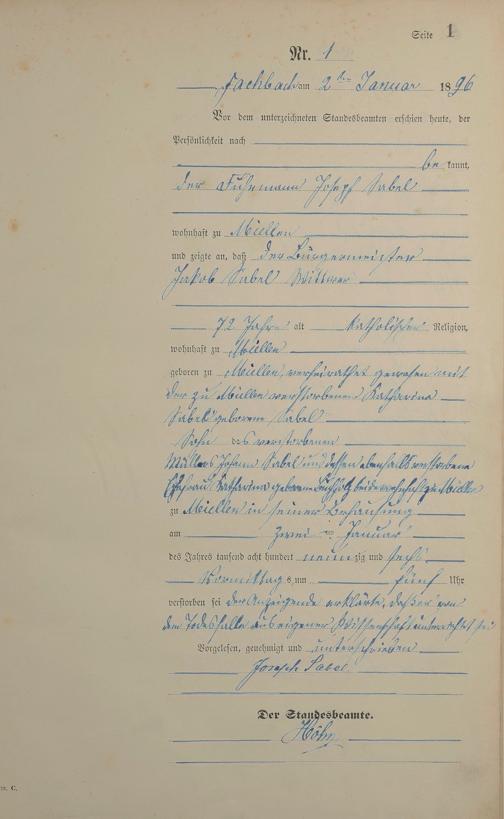 Seite 1
Nr. 1
Fachbach am 2ten Januar 1896
Vor dem unterzeichneten Standesbeamten erschien heute, der
Persönlichkeit nach
be kannt,
der Fuhrmann Joseph Sabel
wohnhaft zu Miellen
und zeigte an, daß der Bürgermeister
Jakob Sabel Wittwer
72 Jahre alt Katholischer Religion,
wohnhaft zu Miellen
geboren zu Miellen, verheirathet gewesen mit
der zu Miellen verstorbenen Katharina
Sabel geborene Sabel
Sohn des verstorbenen
Müllers Johann Sabel und dessen ebenfalls verstorbene
Ehefrau Katharina geborene beide wohnhaft zu Miellen
zu Miellen in seiner Behausung
am zwei ten Januar
des Jahres tausend acht hundert neun zig und sechs
Vormittags um fünf Uhr
verstorben sei der Anzeigende erklärte, daß er von
dem Todesfalle aus eigener Wissenschaft unterrichtet sei
Vorgelesen, genehmigt und unterschrieben
Joseph Sabel
Der Standesbeamte.
Höhn
C.